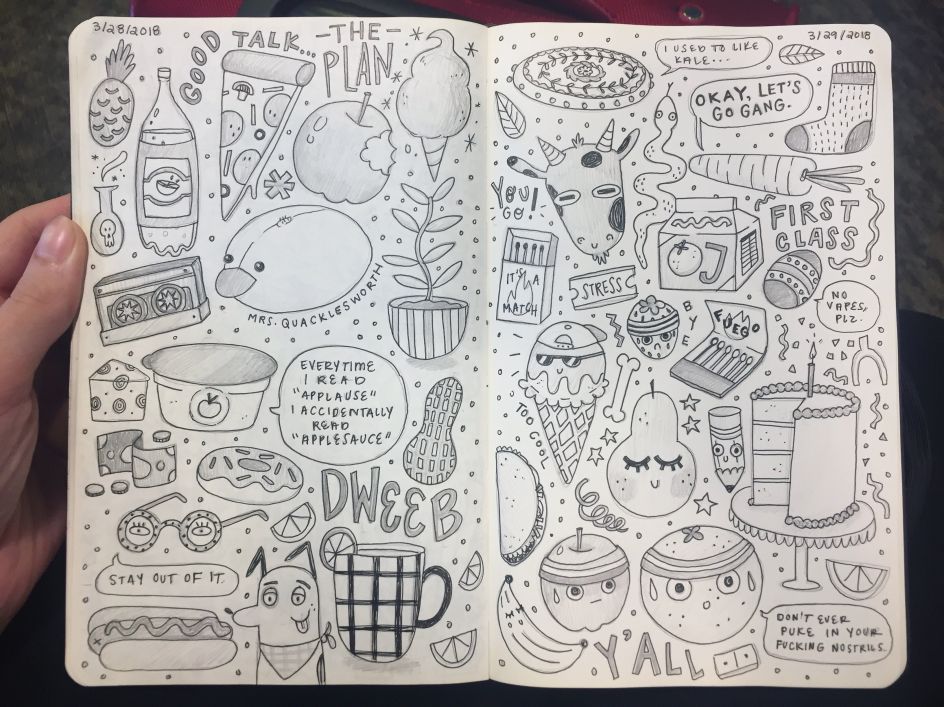 3/28/2018
GOOD TALK...
-THE-
PLAN
MRS. QUACKLESWORTH
EVERYTIME
I READ
"APPLAUSE"
I ACCIDENTALLY
READ
"APPLESAUCE"
DWEEB
STAY OUT OF IT.
3/29/2018
I USED TO LIKE
KALE...
OKAY, LET'S
GO GANG.
YOU!
GO!
FIRST
CLASS
OJ
IT'S
A
MATCH
STRESS
BYE
FUEGO
NO
VAPES,
PLZ.
TOO COOL
MH
Y'ALL
DON'T EVER
PUKE IN YOUR
FUCKING NOSTRILS.